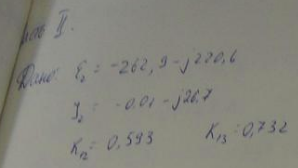 II.
Дано: E₂ = -262,9 - j220,6
J₂ = -0,01 - j26,7
K₁₂ = 0,593 K₁₃ = 0,732